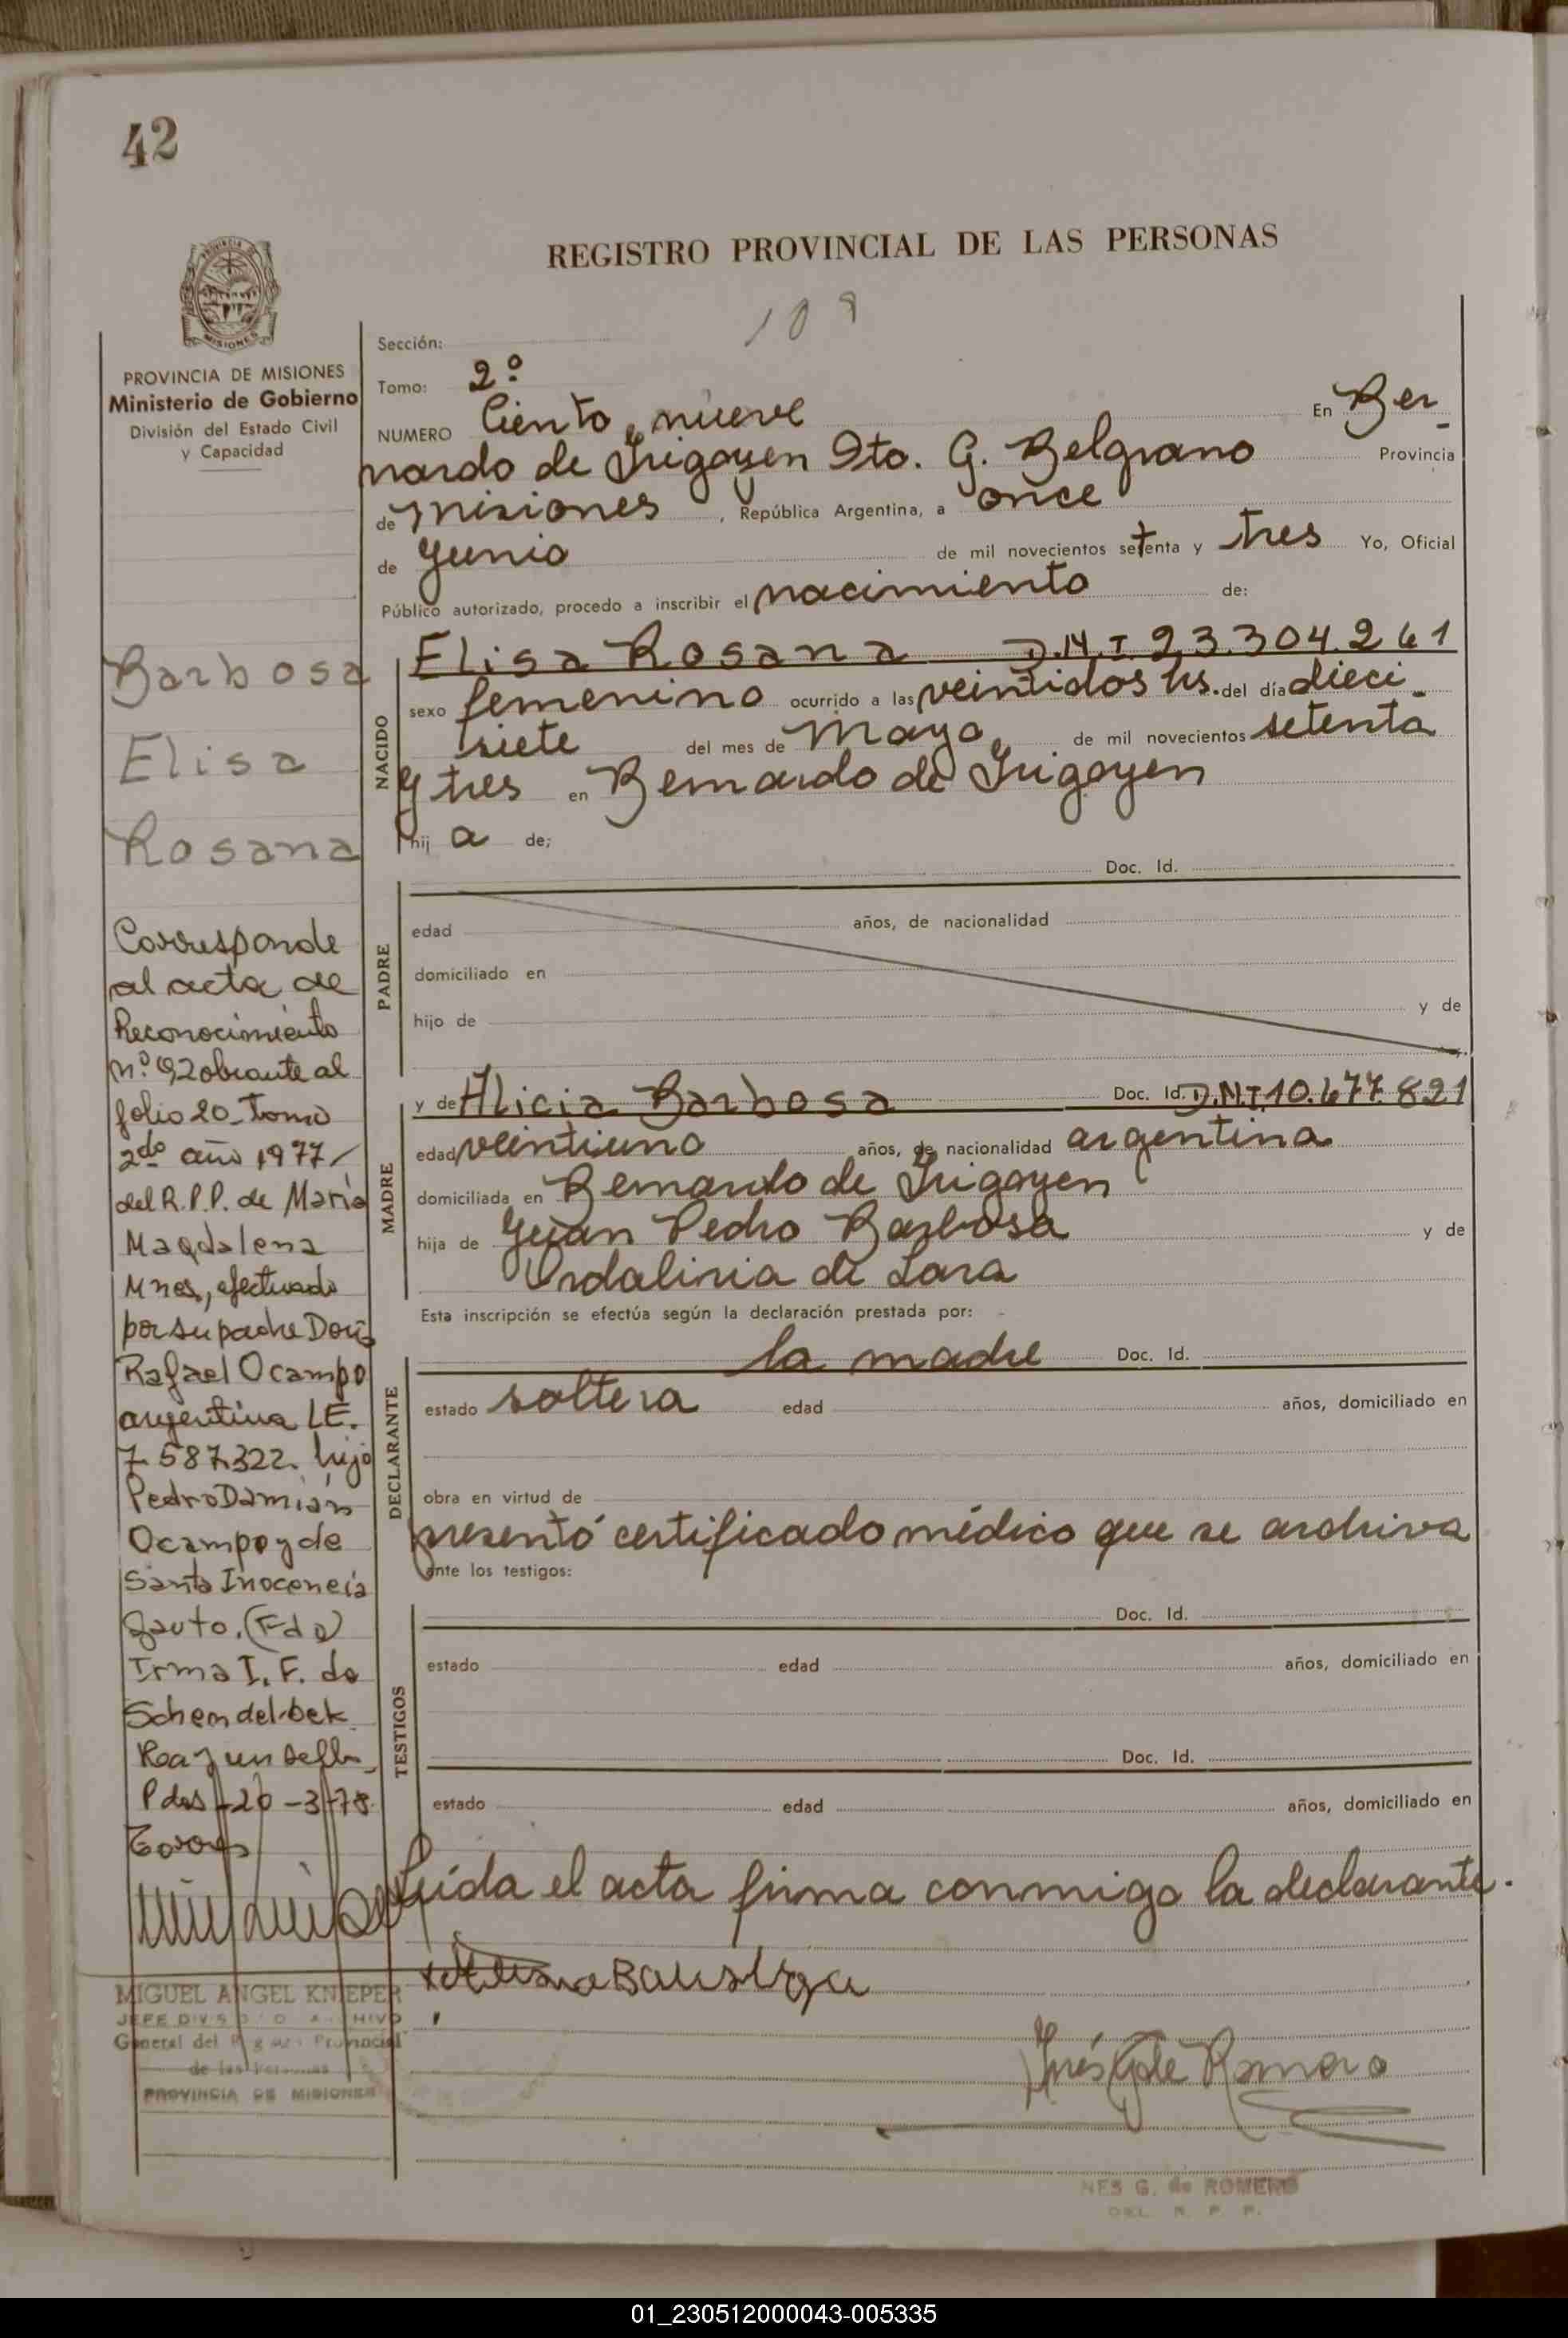 42
REGISTRO PROVINCIAL DE LAS PERSONAS
109
PROVINCIA DE MISIONES
Ministerio de Gobierno
División del Estado Civil
y Capacidad
Sección:
Tomo: 2º
NUMERO Ciento nueve En Ber-
nardo de Irigoyen Dto. G. Belgrano Provincia
de Misiones, República Argentina, a once
de Junio de mil novecientos setenta y tres Yo, Oficial
Público autorizado, procedo a inscribir el nacimiento de:
NACIDO
Elisa Rosana D.N.I 23.304.261
sexo femenino ocurrido a las veintidos hs. del día dieci-
siete del mes de Mayo de mil novecientos setenta
y tres en Bernardo de Irigoyen
hij a de;
PADRE
Doc. Id.
edad años, de nacionalidad
domiciliado en
hijo de y de
MADRE
y de Alicia Barbosa Doc. Id. D.N.I 10.677.821
edad veintiuno años, de nacionalidad argentina
domiciliada en Bernardo de Irigoyen
hija de Juan Pedro Barbosa y de
de Lara
Esta inscripción se efectúa según la declaración prestada por:
DECLARANTE
la madre Doc. Id.
estado soltera edad años, domiciliado en
obra en virtud de
presentó certificado médico que se archiva
ante los testigos:
TESTIGOS
Doc. Id.
estado edad años, domiciliado en
Doc. Id.
estado edad años, domiciliado en
Leída el acta firma conmigo la declarante.
Inés G de Romero
INES G. de ROMERO
DEL R. P. P.
Barbosa
Elisa
Rosana
Corresponde
al acta de
Reconocimiento
nº 92 obrante al
folio 20_Tomo
2do año 1977/
del R.P.P. de María
Magdalena
Mnes, efectuado
por su padre Don
Rafael Ocampo
argentina LE.
7.587.322. hijo
Pedro Damián
Ocampo y de
Santa Inocencia
Gauto. (Fdo)
Irma I. F. de
Schendelbek
Hay un sello
Pdas-20-3-78
MIGUEL ANGEL KNIEPER
JEFE DIVISIO ARCHIVO
General del Registro Provincial
de las Personas
PROVINCIA DE MISIONES
01_230512000043-005335